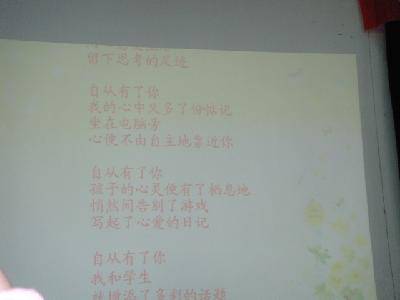 留下思考的足迹
自从有了你
我的心中又多了份惦记
坐在电脑旁
心便不由自主地靠近你
自从有了你
孩子的心灵便有了栖息地
悄然间告别了游戏
写起了心爱的日记
自从有了你
我和学生
就增添了多彩的话题